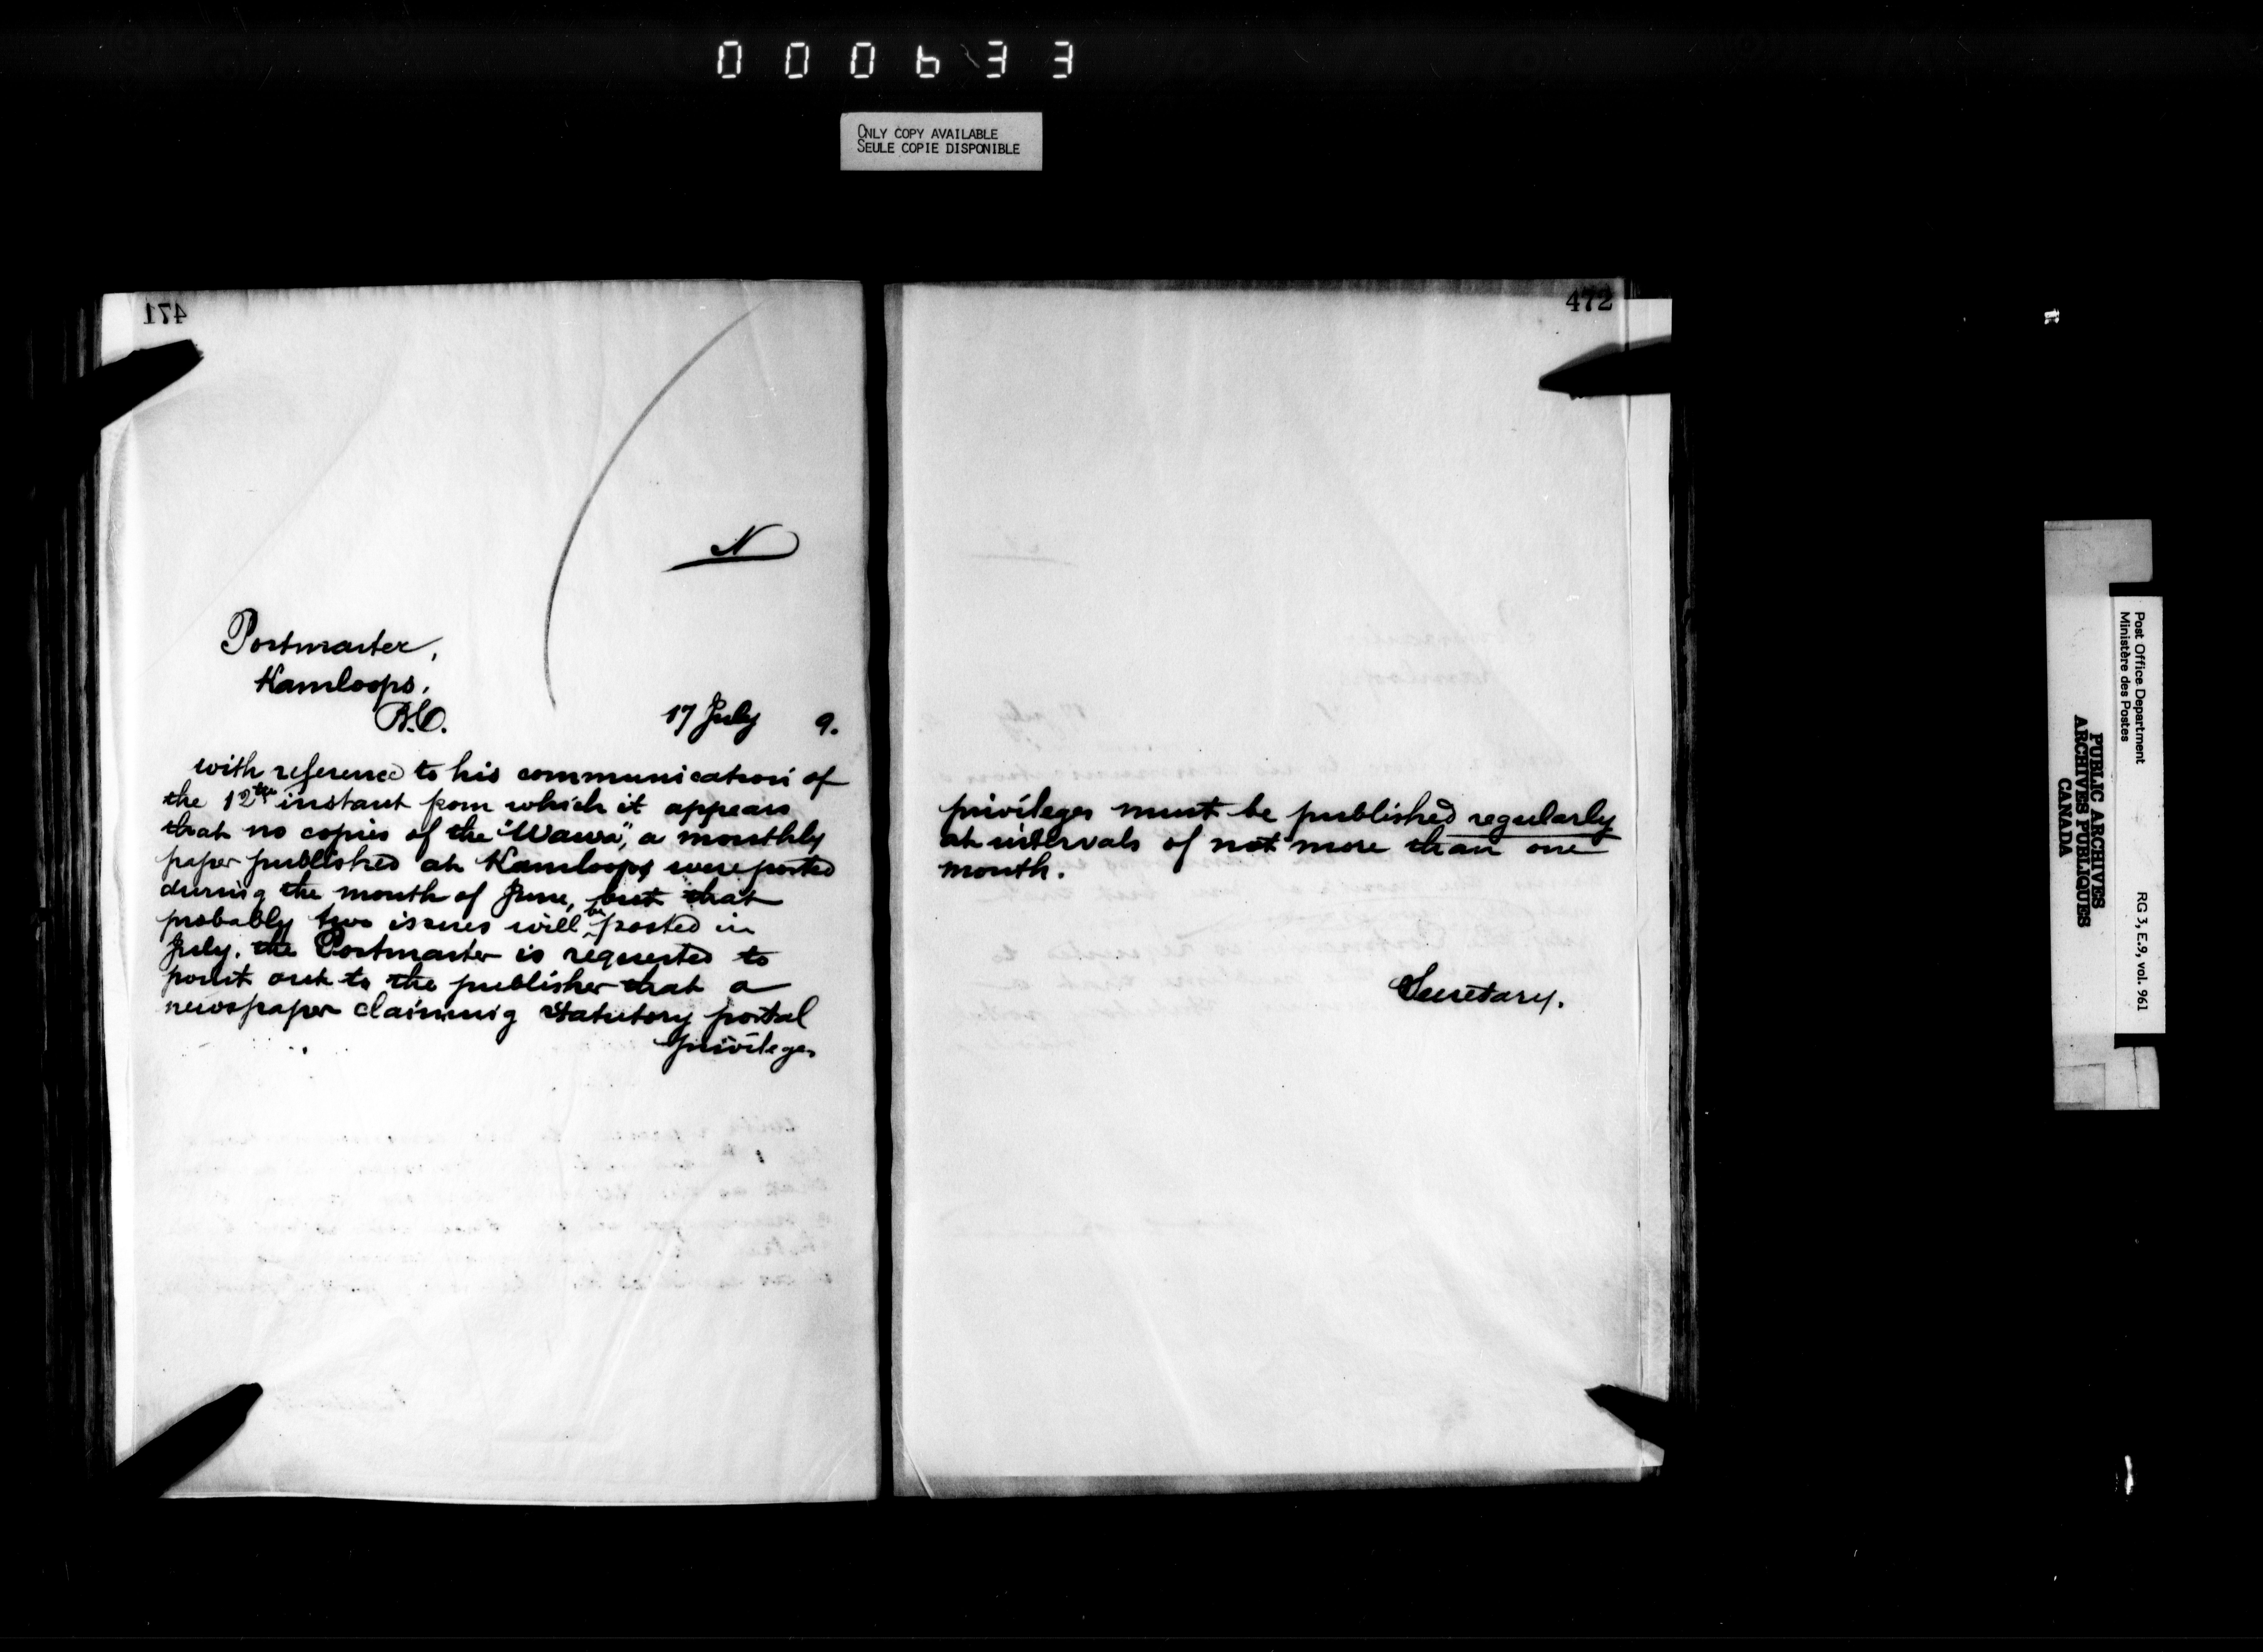 000633
ONLY COPY AVAILABLE
SEULE COPIE DISPONIBLE
471
N
Postmaster,
Kamloops,
B.C.
17 July 9.
with reference to his communication of
the 12th instant from which it appears
that no copies of the "Wawa", a monthly
paper published at Kamloops were posted
during the month of June, but that
probably two issues will be posted in
July. the Postmaster is requested to
point out to the publisher that a
newspaper claiming statutory postal
privileges
472
privileges must be published regularly
at intervals of not more than one
month.
Secretary.
Post Office Department
Ministère des Postes
RG 3, E.9, vol. 961
PUBLIC ARCHIVES
ARCHIVES PUBLIQUES
CANADA